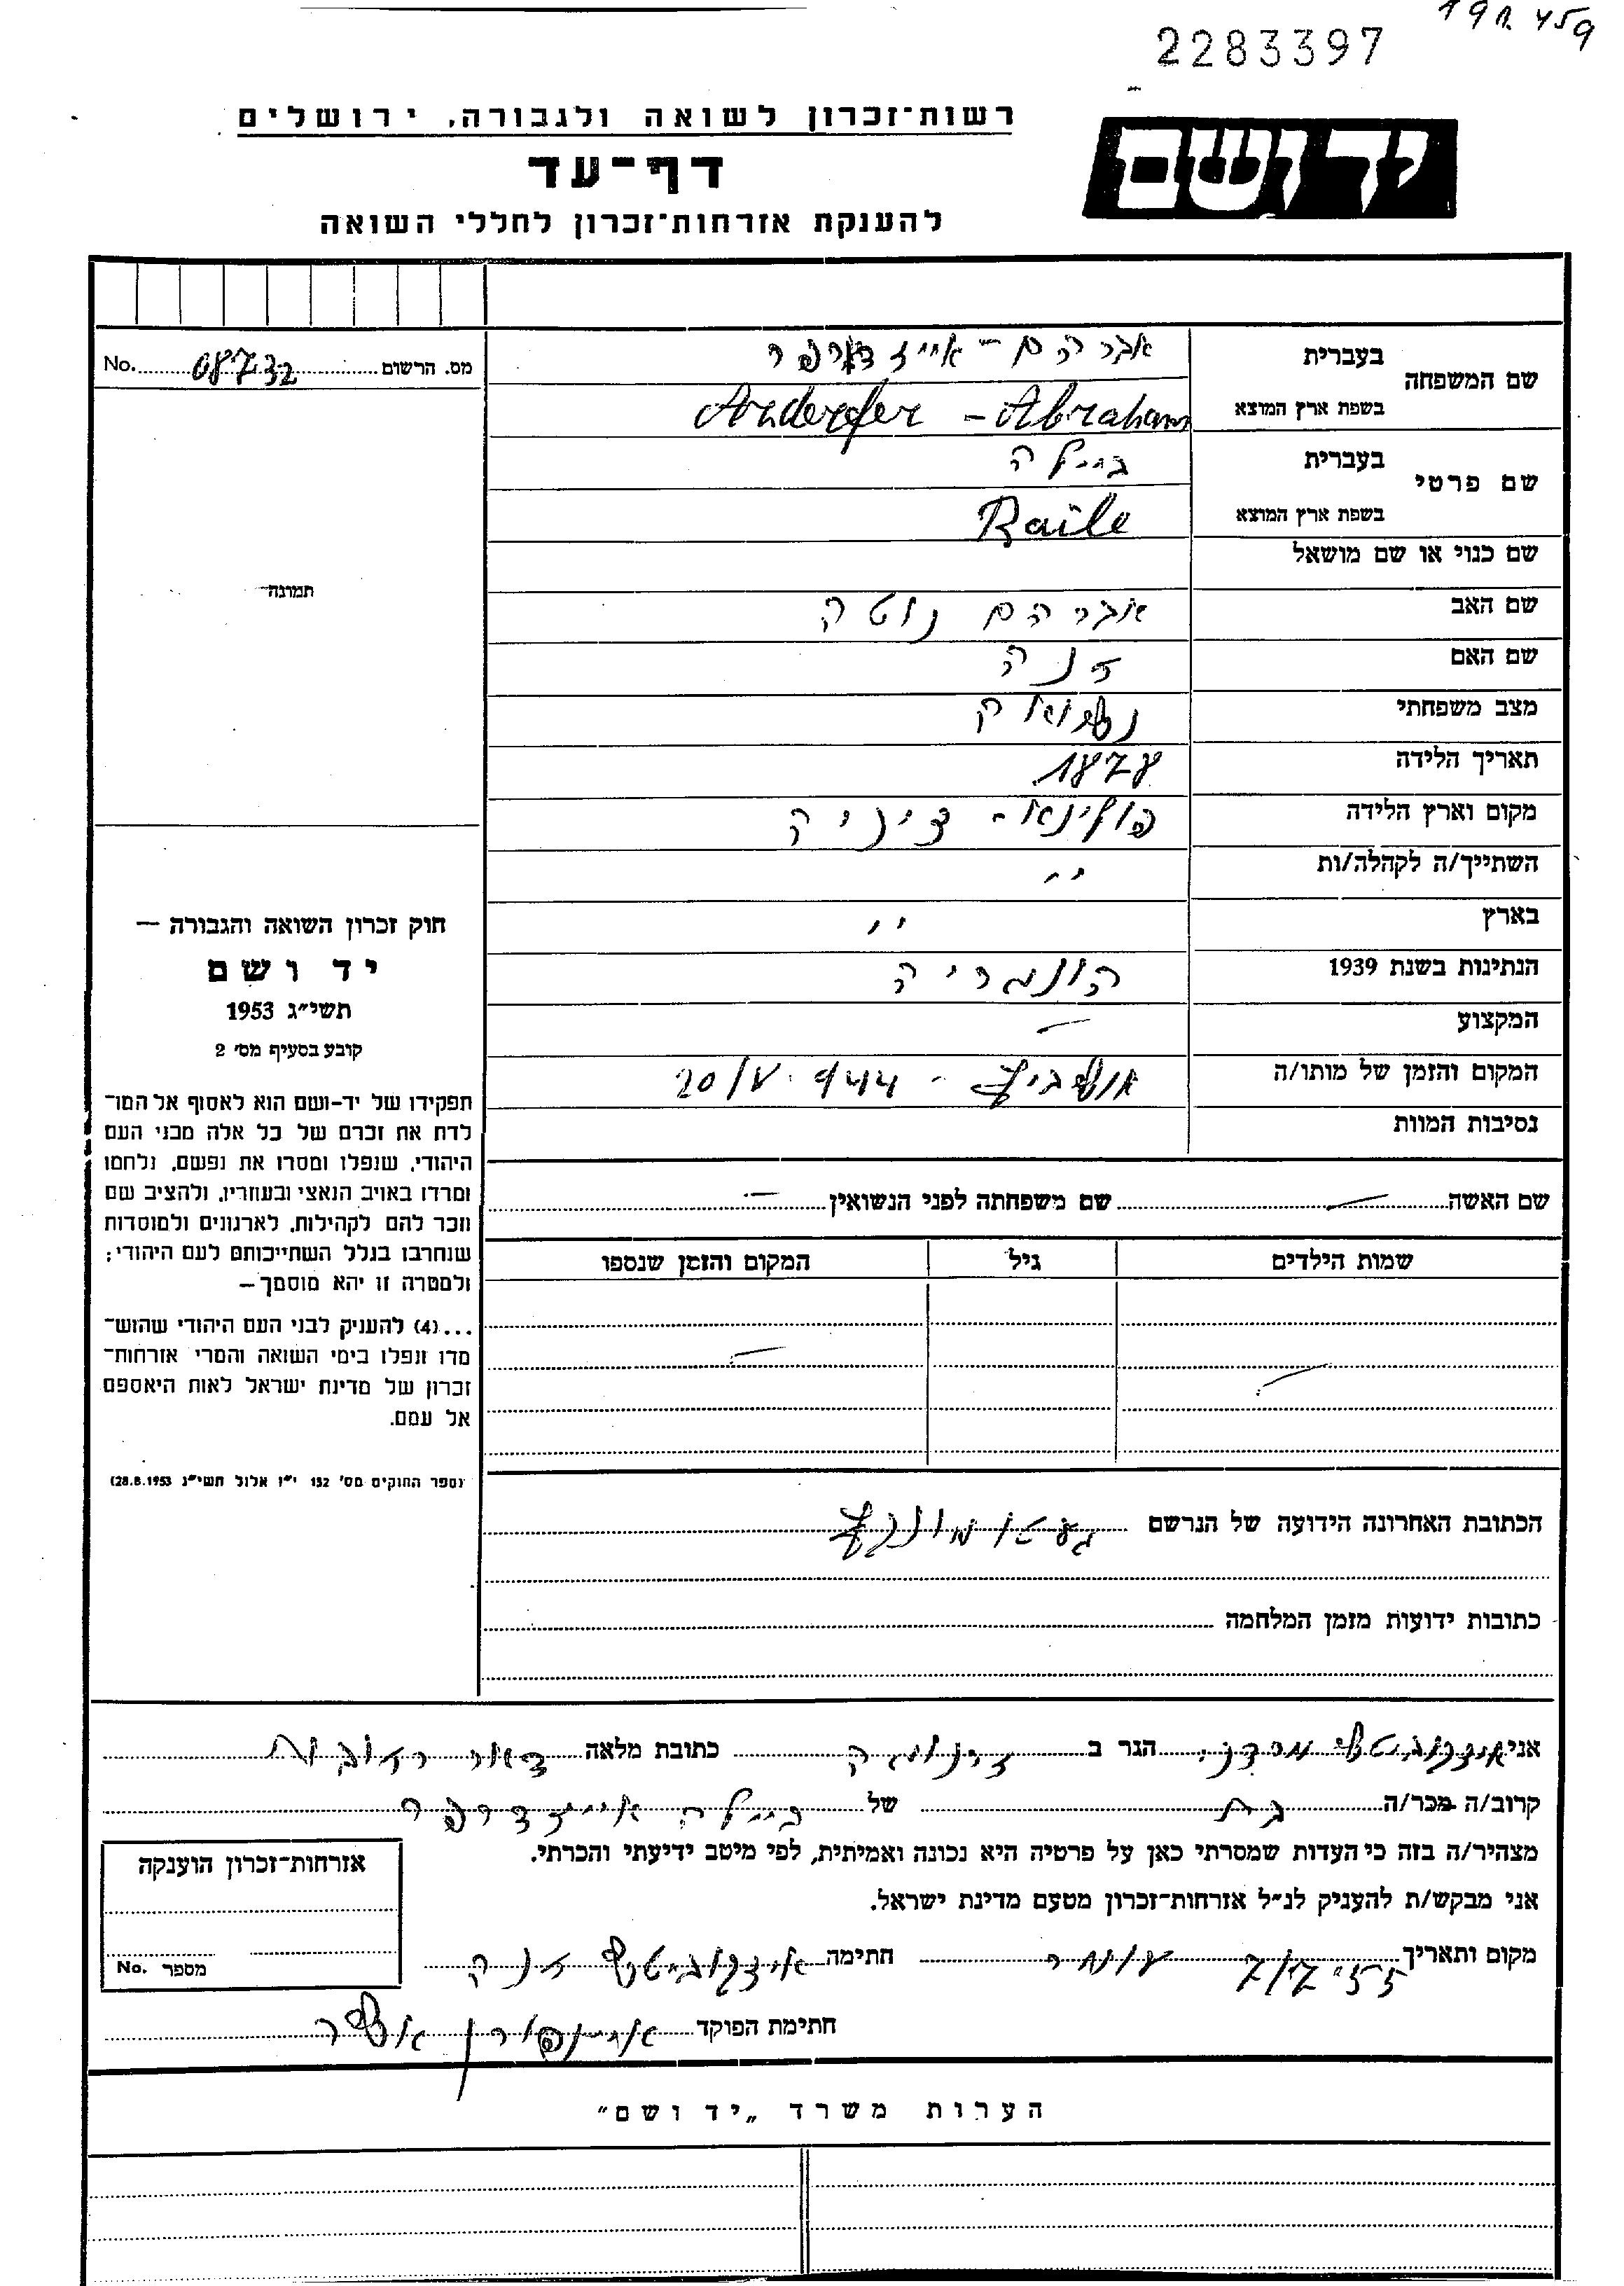 19 ח. 459
2283397
יד ושם
רשות-זכרון לשואה ולגבורה, ירושלים
דף-עד
להענקת אזרחות-זכרון לחללי השואה
מס. הרשום 08732 No.
שם המשפחה
בעברית
אברהם - אייזדרפר
בשפת ארץ המוצא
Arderfer - Abraham
שם פרטי
בעברית
ביילה
בשפת ארץ המוצא
Baile
שם כנוי או שם מושאל
שם האב אברהם נוטה
שם האם חנה
מצב משפחתי נשואה
תאריך הלידה 1878
מקום וארץ הלידה
השתייך/ה לקהלה/ות ״
בארץ ״
הנתינות בשנת 1939 הונגריה
המקצוע —
המקום והזמן של מותו/ה אושביץ - 944 . 20/V
נסיבות המוות
תמונה
חוק זכרון השואה והגבורה —
יד ושם
תשי״ג 1953
קובע בסעיף מס׳ 2
תפקידו של יד-ושם הוא לאסוף אל המו־
לדת את זכרם של כל אלה מבני העם
היהודי, שנפלו ומסרו את נפשם, נלחמו
ומרדו באויב הנאצי ובעוזריו, ולהציב שם
וזכר להם לקהילות, לארגונים ולמוסדות
שנחרבו בגלל השתייכותם לעם היהודי;
ולמטרה זו יהא מוסמך —
...(4) להעניק לבני העם היהודי שהוש־
מדו ונפלו בימי השואה והמרי אזרחות־
זכרון של מדינת ישראל לאות היאספם
אל עמם.
(ספר החוקים מס׳ 132 י״ז אלול תשי״ג 28.8.1953)
שם האשה — שם משפחתה לפני הנשואין —
שמות הילדים גיל המקום והזמן שנספו
הכתובת האחרונה הידועה של הנרשם געטו מונקץ
כתובות ידועות מזמן המלחמה
אני הגר ב זרנוגה כתובת מלאה דואר רחובות
קרוב/ה מכר/ה בת של ביילה אייזדרפר
מצהיר/ה בזה כי העדות שמסרתי כאן על פרטיה היא נכונה ואמיתית, לפי מיטב ידיעתי והכרתי.
אני מבקש/ת להעניק לנ״ל אזרחות-זכרון מטעם מדינת ישראל.
מקום ותאריך חתימה איצקוביטש חנה
חתימת הפוקד
אזרחות-זכרון הוענקה
מספר No.
הערות משרד „יד ושם"